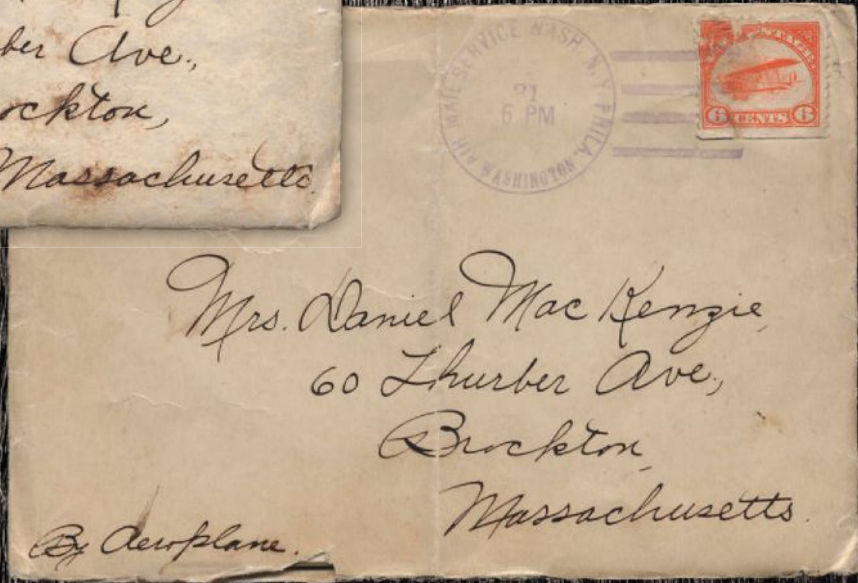 ber Ave.,
ockton,
Massachusetts.
AIR MAIL SERVICE WASH. N.Y. PHILA.
21
6 PM
WASHINGTON
6 CENTS 6
Mrs. Daniel MacKenzie,
60 Thurber Ave.,
Brockton,
Massachusetts.
By Aeroplane.